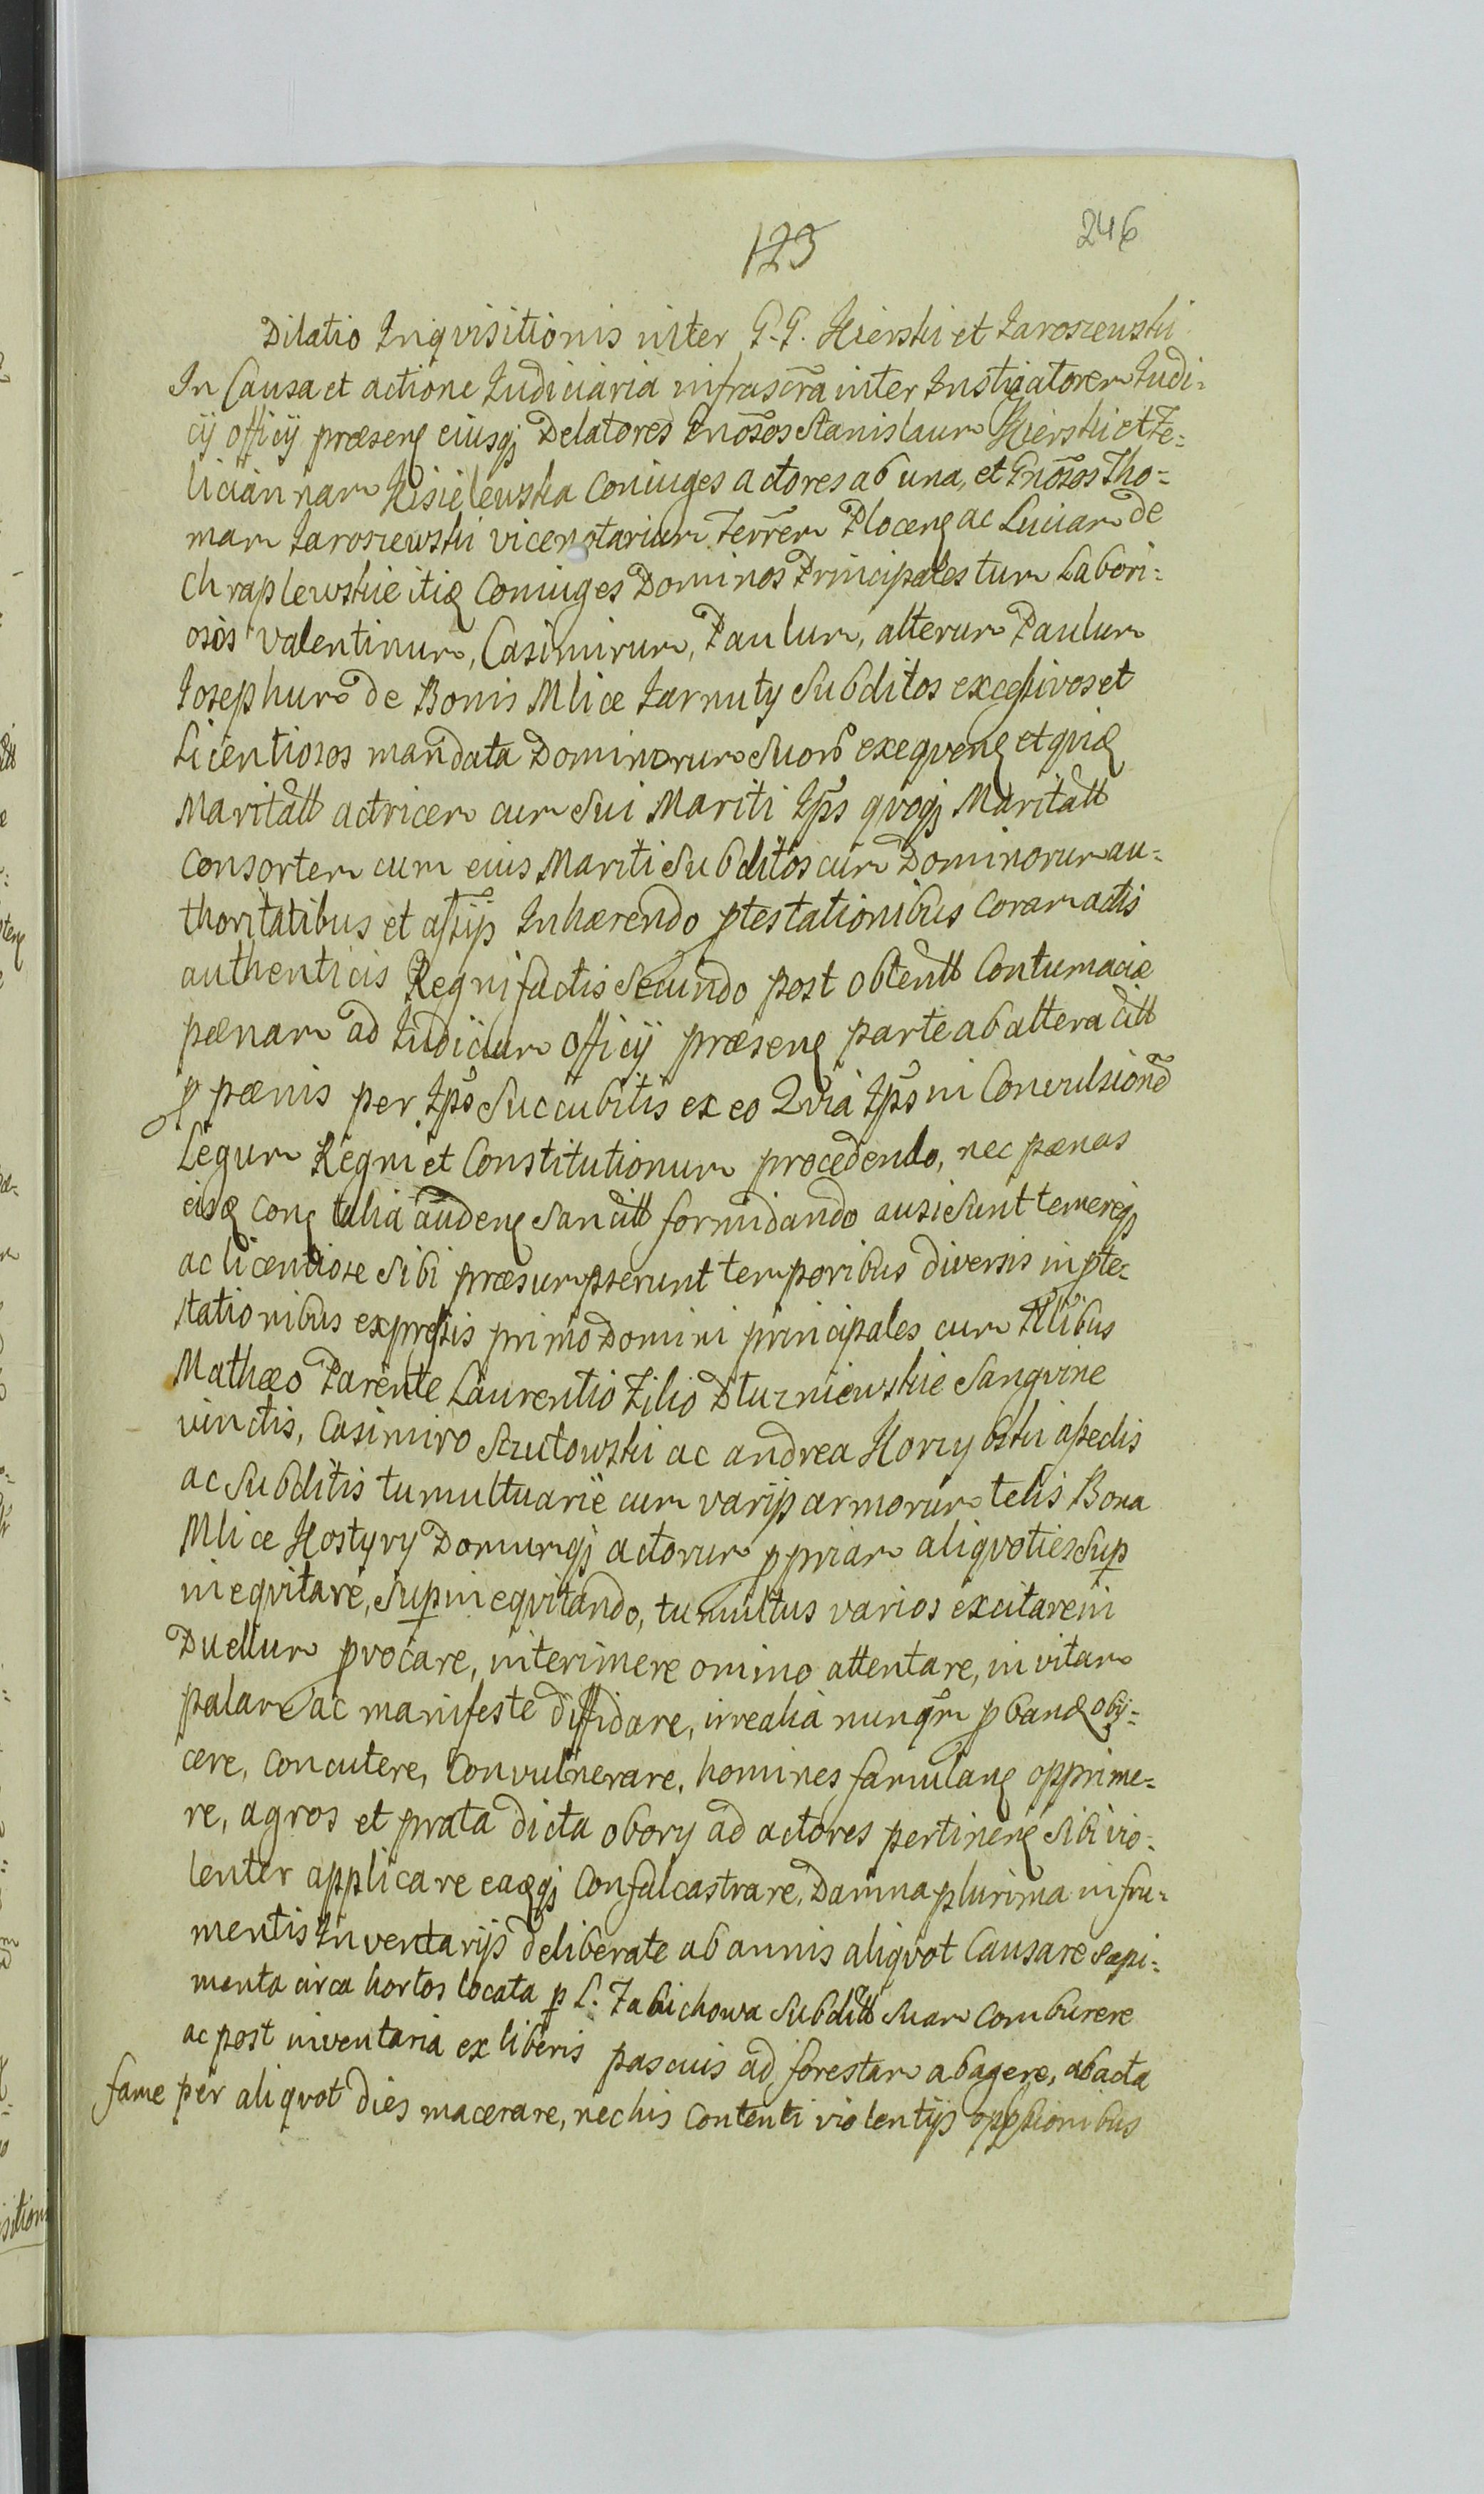 123
246
Dilatio Inqvisitionis inter G. G. Kierski et Jaroszewski
In Causa et actione Judiciaria infrascra inter Instigatorem Judi-
cij officij præsenȩ eiusqꝫ Delatores Gnosos Stanislaum Kierski et Fe-
liciannam Kisielewska Coniuges actores ab una, et Gnosos Tho-
mam Jaroszewski vicenotarium Terrem Plocenȩ ac Luciam de
Chraplewskie itiꝫ Coniuges Dominos Principales tum Labori-
osos Valentinum, Casimirum, Paulum, alterum Paulum
Josephum de Bonis Mlice Jarnuty Subditos excessivos et
Licentiosos mandata Dominorum Suorꝫ exeqvenȩ et qviꝫ
Maritatt actricem cum Sui Mariti Ips qvoqꝫ Maritatt
Consortem cum eius Mariti Subditos cum Dominorum au-
thoritatibus et assijs Inhærendo ꝓtestationibus Coram actis
authenticis Regni factis Secundo post obtentt Contumaciæ
pænam ad Judicium officij præsenȩ parte ab altera citt
ꝓ pænis per Ips Succubitis ex eo Qvia Ips in Convulsionem
Legum Regni et Constitutionum procedendo, nec pænas
eisꝫ conȩ talia audenȩ Sancitt formidando ausi Sunt temereqꝫ
ac licentiose Sibi præsumpserunt temporibus diversis in ꝓte-
stationibus expressis primo Domini principales cum Nlibus
Mathæo Parente Laurentio Filio Dturniewskie Sangvine
vinctis, Casimiro Szutowski ac andrea Korzybski assedis
ac Subditis tumultuarie cum varijs armorum telis Bona
Mlice Kostyry Domumqꝫ actorum ꝓpriam aliqvoties Suꝑ
ineqvitare, Suꝑineqvitando, tumultus varios excitare in
Duellum ꝓvocare, interimere omino attentare, in vitam
palam ac manifeste diffidare, irrealia nunqm ꝓbanꝫ obij-
cere, Concutere, Convulnerare, homines famulanȩ opprime-
re, agros et prata dicta obory ad actores pertinenȩ Sibi vio-
lenter applicare eaꝫqꝫ Confalcastrare, Damna plurima in fru-
mentis Inventarijs deliberate ab annis aliqvot Causare Sepi-
menta circa hortos locata ꝑ L. Fabichowa Subditt Suam Comburere
ac post inventaria ex liberis pascuis ad forestam abagere, abacta
fame per aliqvot dies macerare, nec his Contenti violentijs oppssionibus